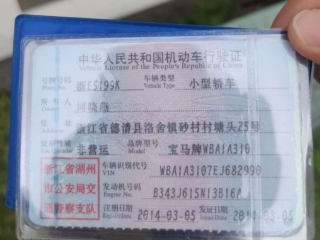 中华人民共和国机动车行驶证
Vehicle License of the People's Republic of China
号牌号码 Plate No. 浙E5199K 车辆类型 Vehicle Type 小型轿车
所有人
住址 浙江省德清县洛舍镇砂村村塘头25号
使用性质 非营运 品牌型号 Model 宝马牌WBA1A310
浙江省湖州 车辆识别代号 VIN WBA1A3107EJ682990
市公安局交 发动机号码 Engine No. B343J615N13B16A
通警察支队 注册日期 2014-03-05 发证日期 2014-03-05